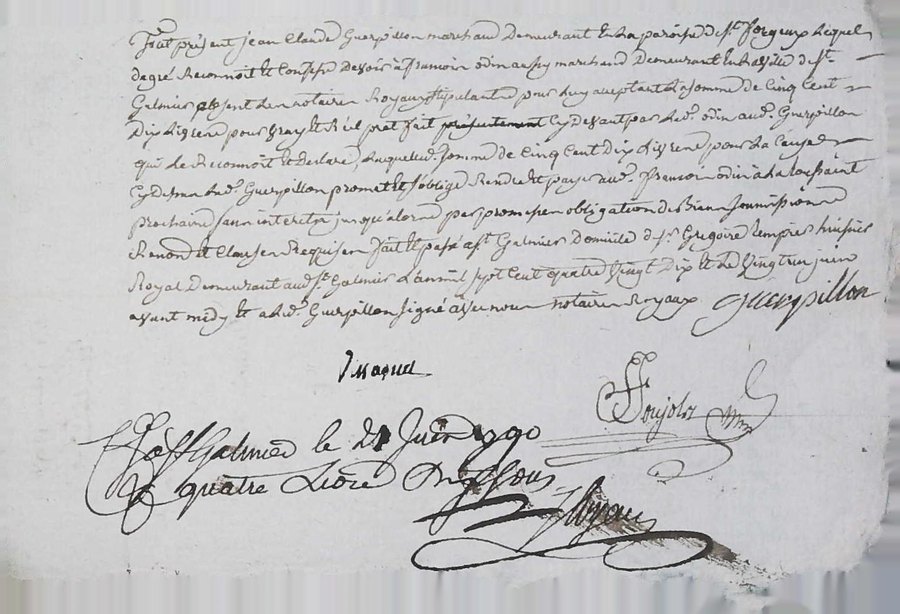 Fut présent jean Claude Guerpillon marchand Demeurant En La paroisse de St. forgeux Lequel
de gré Reconnoit Et Confesse Devoir à francois odin aussy marchand Demeurant En La ville de St.
Galmier absent Les notaires Royaux stipulants pour Luy acceptant La somme de Cinq Cent
Dix Livres pour vray Et Réel pret fait présentement Cy Devant par Led. odin aud. Guerpillon
qui Le Reconnoit Et declare, Laquelle d. somme de Cinq Cent Dix Livres pour La Cause
Cy dessus Led. Guerpillon promet Et s'oblige Rendre Et payer aud. francois odin à La toussaint
prochaine sans interets jusqu'alors par promesses obligations de Biens soumissions
Renon. et Clauses Requises fait Et passé a St. Galmier Domicile de Sr. Gregoire huissier
Royal Demeurant aud. St. Galmier L'année sept Cent quatre vingt Dix et Le vingt un juin
avant midy et a Led. Guerpillon signé avec nous notaires Royaux guerpillon
Ponjols
à St Galmier le 21 Juin 1790
quatre Livres Dix sous